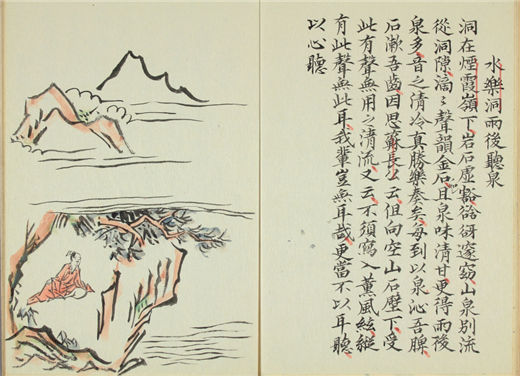 水樂洞雨後聽泉
洞在煙霞嶺下岩石虛豁谽谺邃窈山泉別流
從洞隙滴〻聲韻金石且泉味清甘更得雨後
泉多音之清泠真勝樂奏矣每到以泉沁吾脾
石漱吾齒因思蘓長公云但向空山石壁下受
此有聲無用之清流又云不須寫入薰風絃縱
有此聲無此耳我輩豈無耳哉更當不以耳聽
以心聽